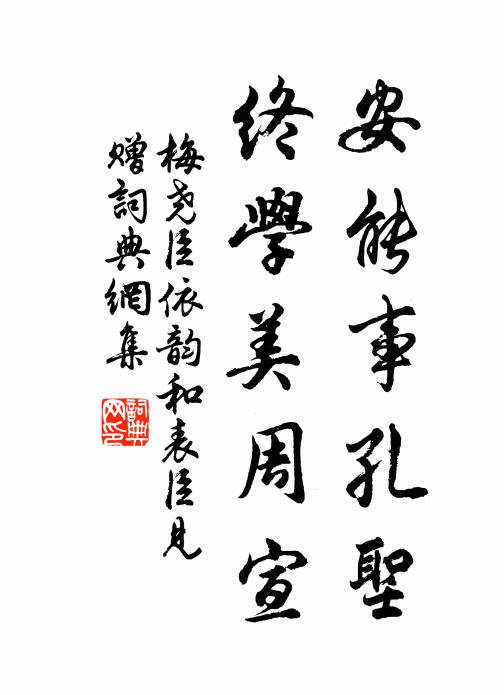 安能事孔聖
終學美周宣
梅堯臣依韵和表臣見
贈詞典網集
詞典网印